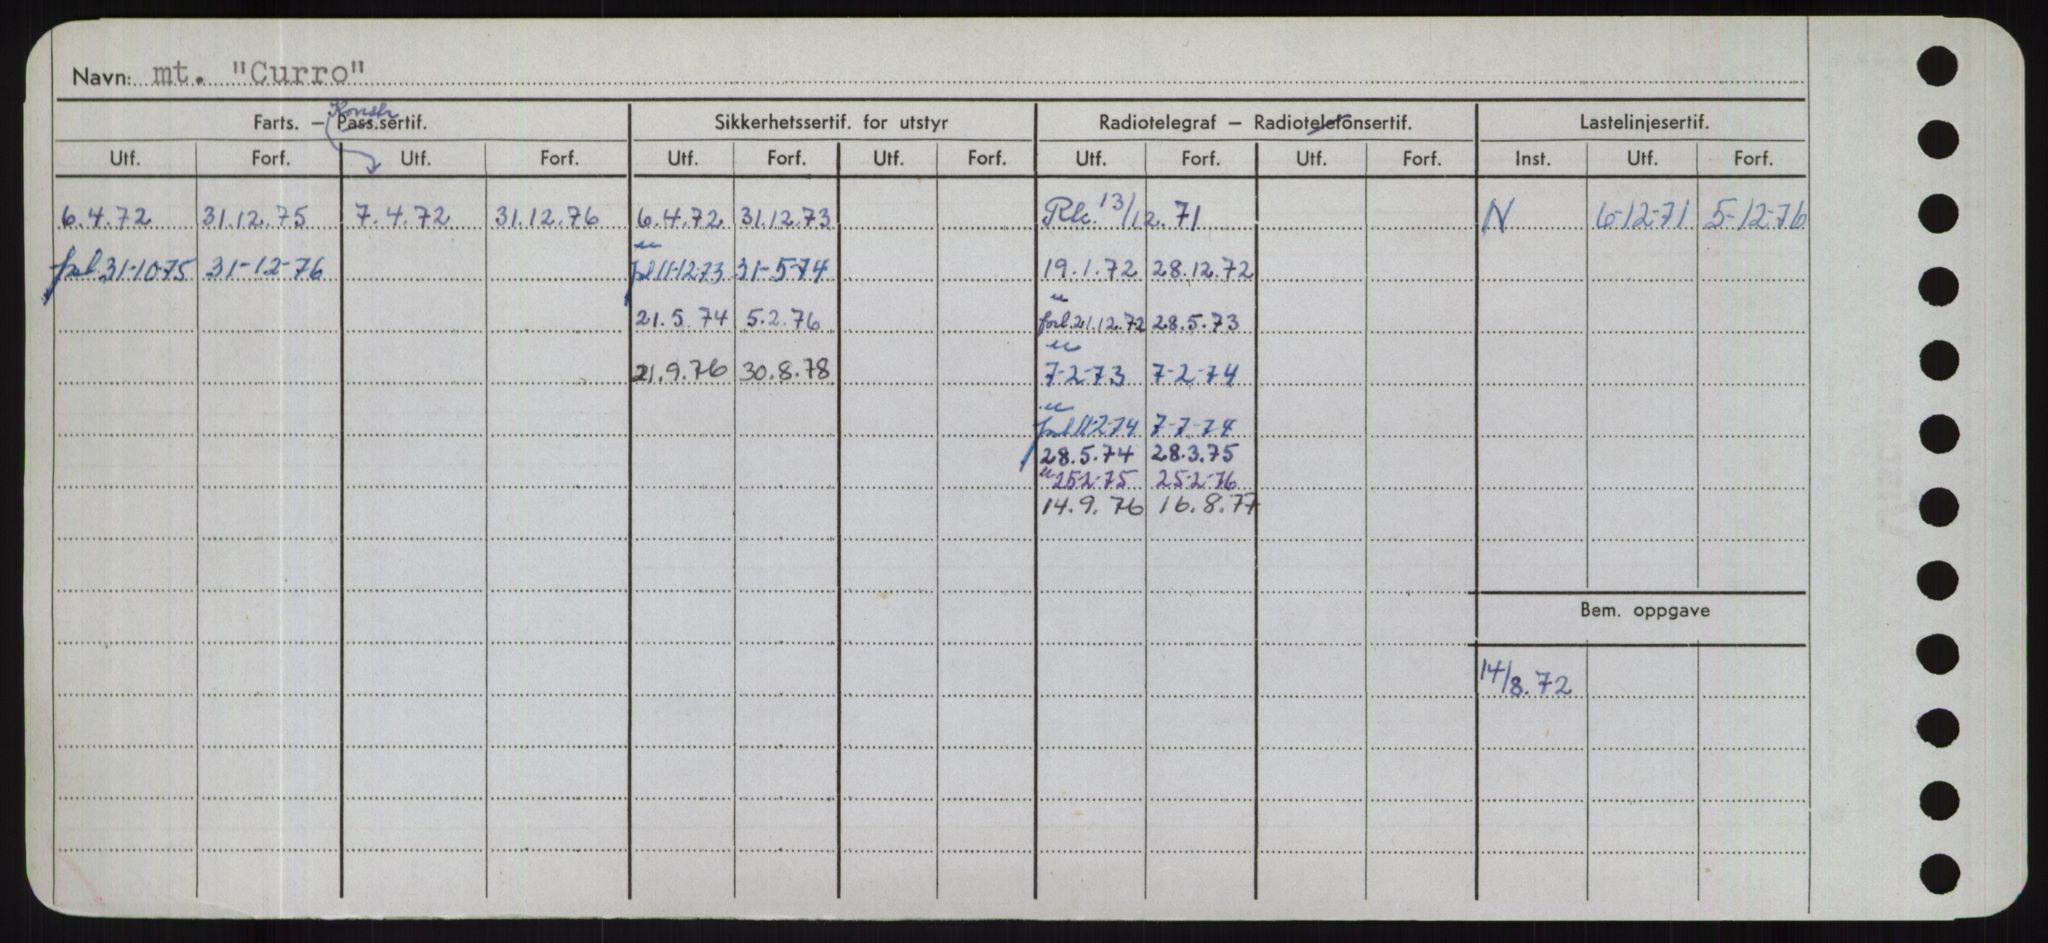 Navn: mt. "Curro"
Konstr
Farts. – Pass.sertif. Sikkerhetssertif. for utstyr Radiotelegraf – Radiotelefonsertif. Lastelinjesertif.
Utf. Forf. Utf. Forf. Utf. Forf. Utf. Forf. Utf. Forf. Utf. Forf. Inst. Utf. Forf.
6.4.72 31.12.75 7.4.72 31.12.76 6.4.72 31.12.73 13/12.71 N 6-12-71 5-12-76
forl 31-10-75 31-12-76 forl 11-12-73 31-5-74 19.1.72 28.12.72
21.5.74 5.2.76 forl 21.12.72 28.5.73
21.9.76 30.8.78 7-2-73 7-2-74
forl 11-2-74 7-7-74
28.5.74 28.3.75
" 25-2-75 25-2-76
14.9.76 16.8.77
Bem. oppgave
14/8.72